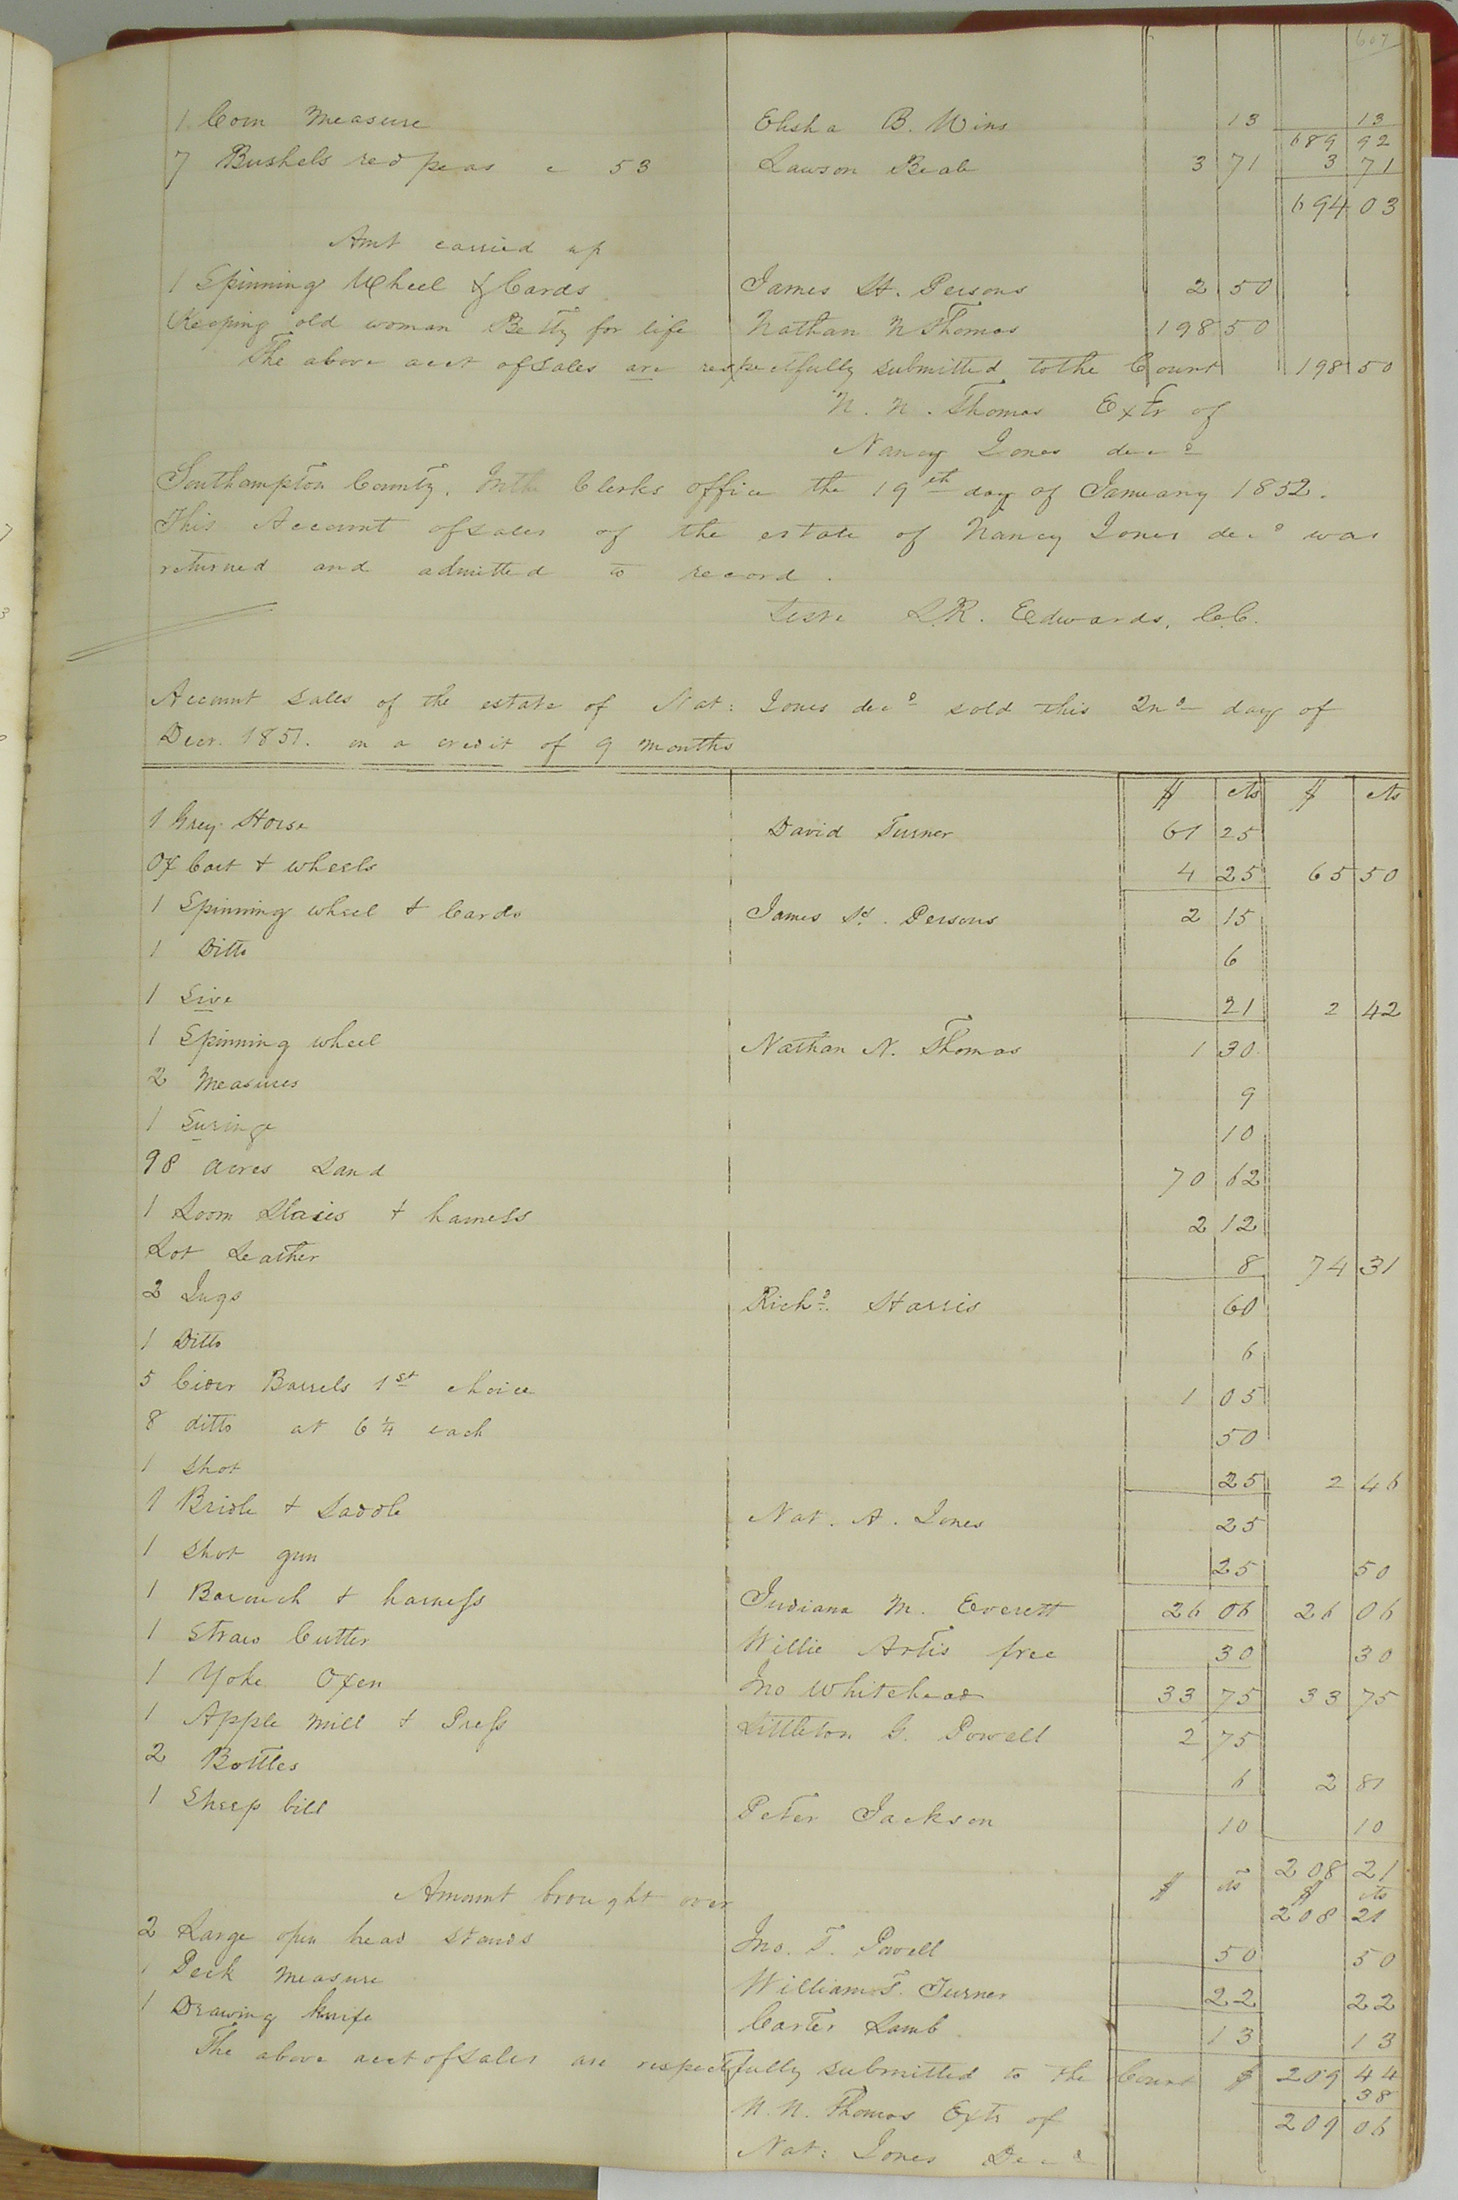 607
1 Corn Measure Elisha B. Wins 13 13
689 92
7 Bushels red peas @ 53 Lawson Beale 3 71 3 71
694 03
Amt carried up
1 Spinning Wheel & Cards James H. Persons 2 50
Keeping old woman Betty for life Nathan N Thomas 198 50
The above acct of sales are respectfully submitted to the Court 198 50
N. N. Thomas Extr of
Nancy Jones decd
Southampton County. In the Clerks office the 19th day of January 1852.
This Account of sales of the estate of Nancy Jones decd was
returned and admitted to record.
Teste L.R. Edwards, C.C.
Account sales of the estate of Nat: Jones decd sold this 2nd day of
Decr. 1851. on a credit of 9 months
$ cts $ cts
1 Grey Horse David Turner 61 25
Ox Cart & wheels 4 25 65 50
1 Spinning wheel & Cards James H. Persons 2 15
1 Ditto 6
1 Sive 21 2 42
1 Spinning wheel Nathan N. Thomas 1 30
2 Measures 9
1 Suringe 10
98 acres Land 70 62
1 Loom Slaies & harness 2 12
Lot Leather 8 74 31
2 Jugs Richd. Harris 60
1 Ditto 6
5 Cider Barrels 1st choice 1 05
8 ditto at 6¼ each 50
1 Shot 25 2 46
1 Bridle & Saddle Nat. A. Jones 25
1 Shot gun 25 50
1 Barouch & harness Indiana M. Everett 26 06 26 06
1 Straw Cutter Willie Artis free 30 30
1 Yoke Oxen Jno Whitehead 33 75 33 75
1 Apple Mill & Press Littleton G. Powell 2 75
2 Bottles 6 2 81
1 Sheep bill Peter Jackson 10 10
208 21
$ cts $ cts
Amount brought over 208 21
2 Large open head Stands Jno. T. Powell 50 50
1 Peck Measure William T. Turner 22 22
1 Drawing knife Carter Lamb 13 13
The above acct of sales are respectfully submitted to the Court $ 209 44
.38
N. N. Thomas Extr of 209 06
Nat: Jones Decd